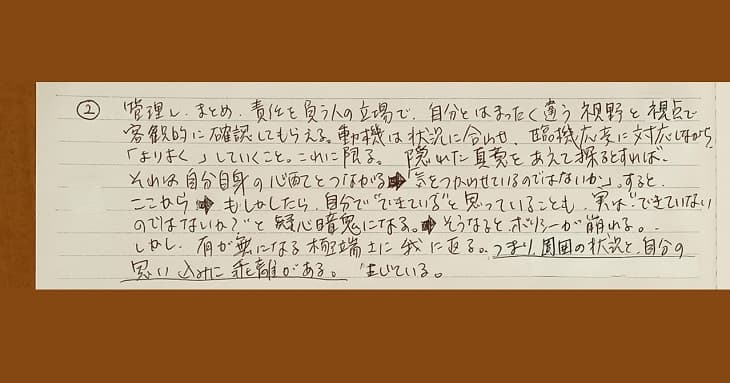 ② 管理し、まとめ、責任を負う人の立場で、自分とはまったく違う視野と視点で
客観的に確認してもらえる。動機は状況に合わせ、臨機応変に対応しながら
「よりよく」していくこと。これに限る。隠れた真意をあえて探るとすれば、
それは自分自身の心配とつながる➡気をつかわせているのではないか」。すると、
ここから➡もしかしたら、自分で“できている”と思っていることも、実は“できていない
のではないか?”と疑心暗鬼になる。➡そうなるとポリシーが崩れる。
しかし、有が無になる極端さに我に返る。つまり、周囲の状況と、自分の
思い込みに乖離がある。生じている。